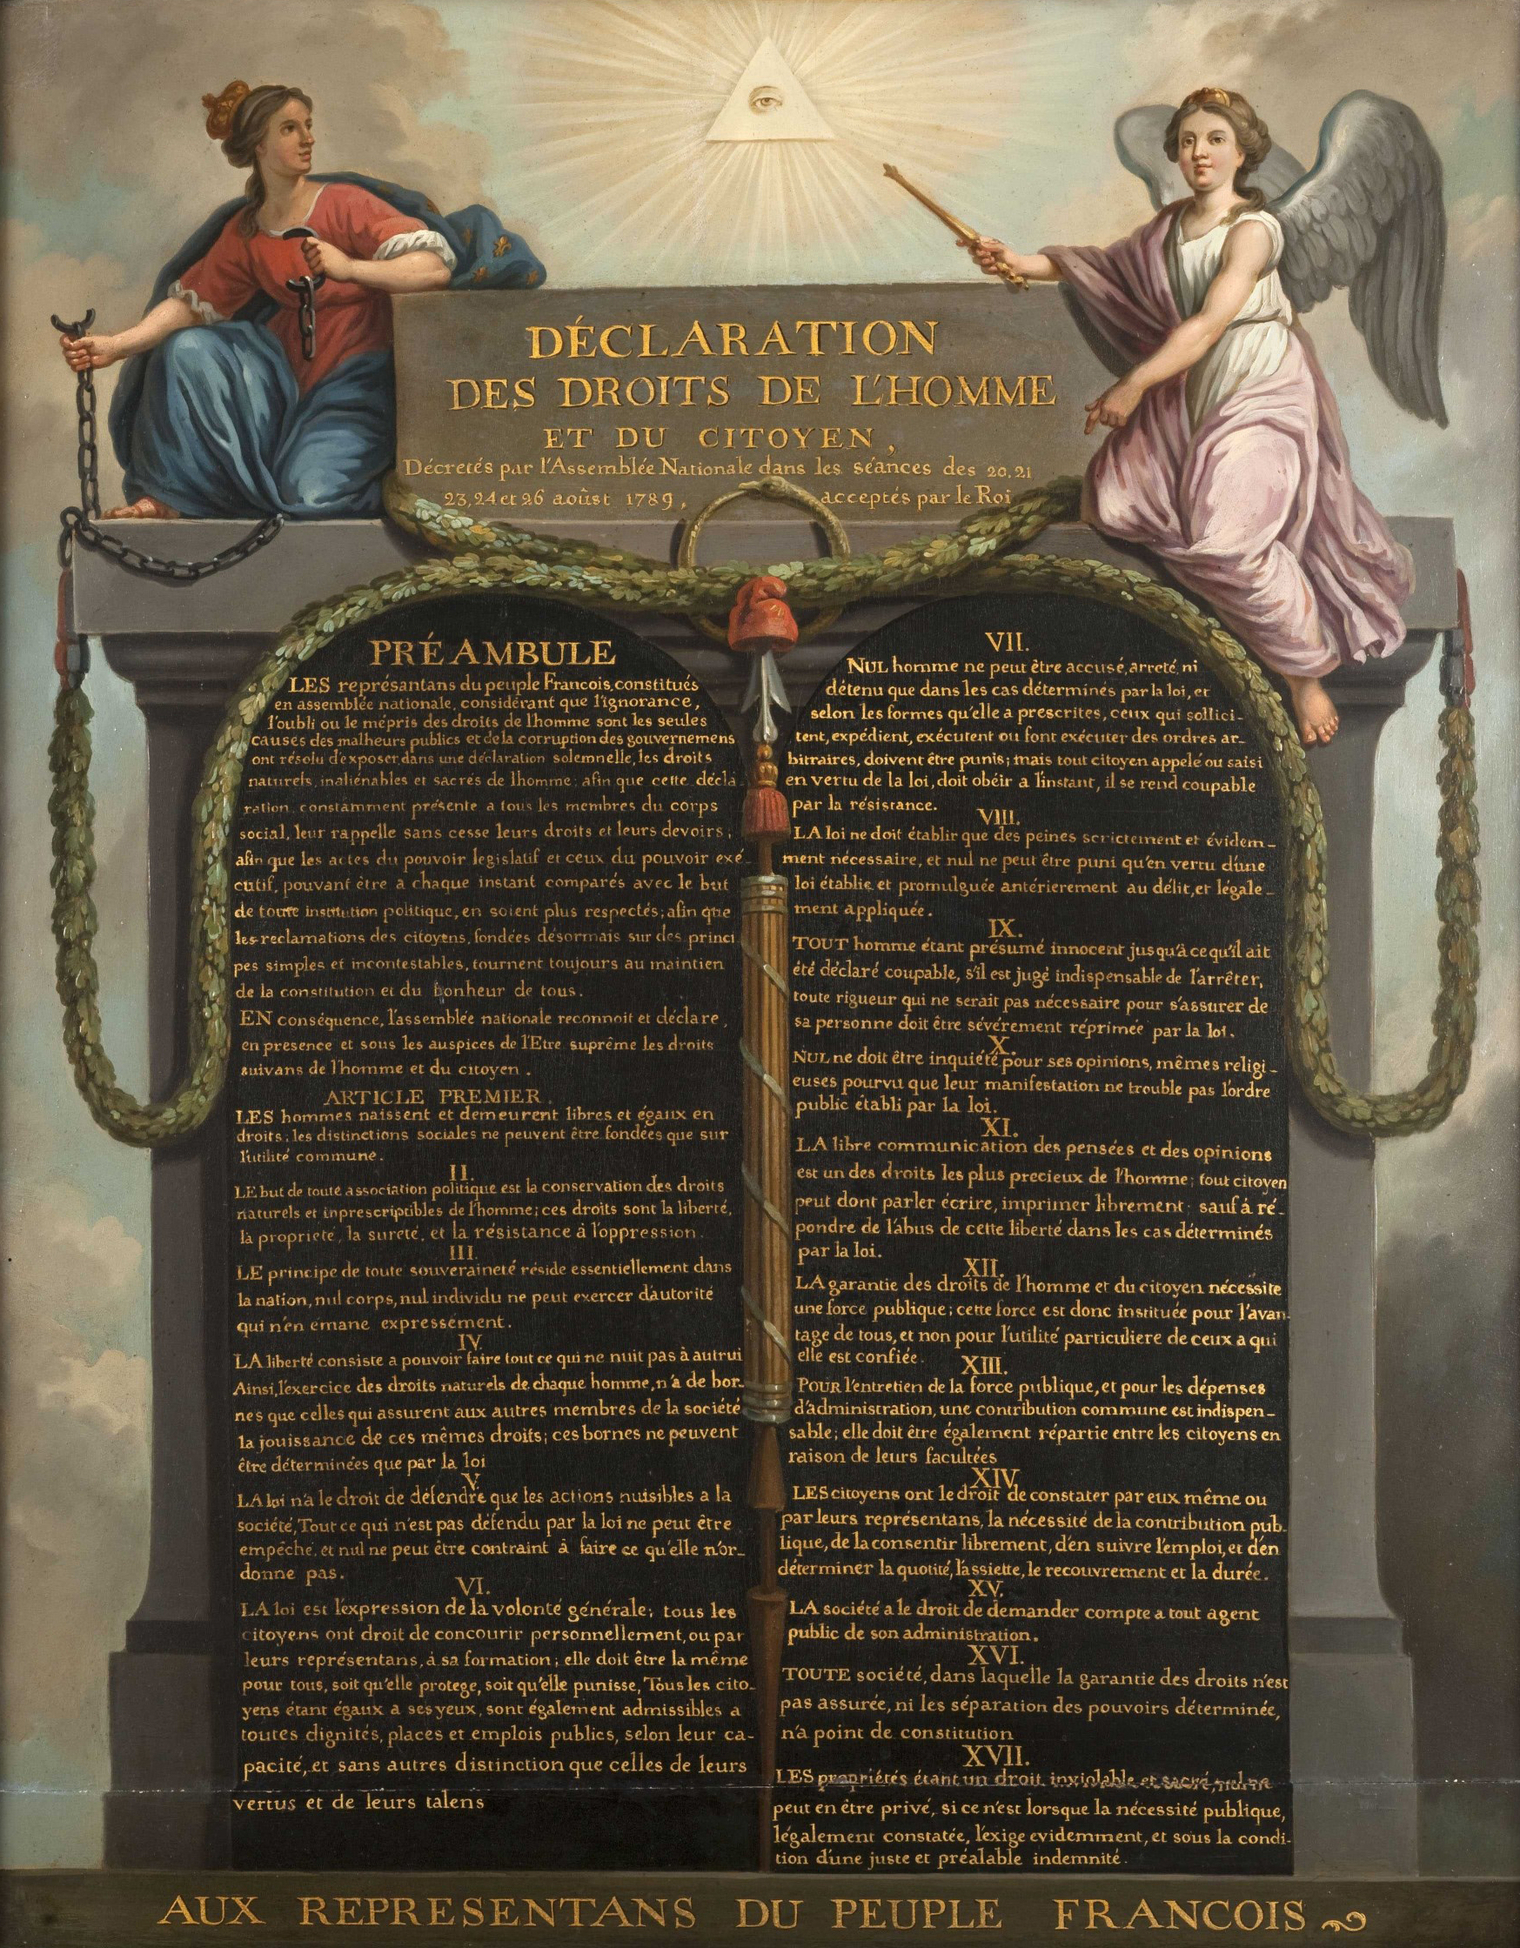 DÉCLARATION
DES DROITS DE L'HOMME
ET DU CITOYEN,
Décretés par l'Assemblée Nationale dans les séances des 20, 21
23, 24 et 26 aoûst 1789, acceptés par le Roi
PRÉAMBULE
LES représantans du peuple Francois, constitués
en assemblée nationale, considérant que l'ignorance,
l'oubli ou le mépris des droits de l'homme sont les seules
causes des malheurs publics et de la corruption des gouvernemens
ont résolu d'exposer dans une déclaration solemnelle, les droits
naturels, inaliénables et sacrés de l'homme; afin que cette décla
ration, constamment présente a tous les membres du corps
social, leur rappelle sans cesse leurs droits et leurs devoirs;
afin que les actes du pouvoir legislatif et ceux du pouvoir exé-
cutif, pouvant être a chaque instant comparés avec le but
de toute institution politique, en soient plus respectés; afin que
les reclamations des citoyens, fondées désormais sur des princi
pes simples et incontestables, tournent toujours au maintien
de la constitution et du bonheur de tous.
EN conséquence, l'assemblée nationale reconnoit et déclare,
en presence et sous les auspices de l'Etre suprême les droits
suivans de l'homme et du citoyen.
ARTICLE PREMIER.
LES hommes naissent et demeurent libres et égaux en
droits; les distinctions sociales ne peuvent être fondées que sur
l'utilité commune.
II.
LE but de toute association politique est la conservation des droits
naturels et inprescriptibles de l'homme; ces droits sont la liberté,
la propriété, la sureté, et la résistance à l'oppression.
III.
LE principe de toute souveraineté réside essentiellement dans
la nation, nul corps, nul individu ne peut exercer d'autorité
qui n'en émane expressément.
IV.
LA liberté consiste a pouvoir faire tout ce qui ne nuit pas à autrui
Ainsi, l'exercice des droits naturels de chaque homme, n'a de bor-
nes que celles qui assurent aux autres membres de la société
la jouissance de ces mêmes droits; ces bornes ne peuvent
être déterminées que par la loi
V.
LA loi n'a le droit de défendre que les actions nuisibles a la
société, Tout ce qui n'est pas défendu par la loi ne peut être
empêché, et nul ne peut être contraint à faire ce qu'elle n'or-
donne pas.
VI.
LA loi est l'expression de la volonté générale; tous les
citoyens ont droit de concourir personnellement, ou par
leurs représentans, à sa formation; elle doit être la même
pour tous, soit qu'elle protege, soit qu'elle punisse, Tous les cito-
yens étant égaux a ses yeux, sont également admissibles a
toutes dignités, places et emplois publics, selon leur ca-
pacité, et sans autres distinction que celles de leurs
vertus et de leurs talens
VII.
NUL homme ne peut être accusé, arreté, ni
détenu que dans les cas déterminés par la loi, et
selon les formes qu'elle a prescrites, ceux qui sollici-
tent, expédient, exécutent ou font exécuter des ordres ar-
bitraires, doivent être punis; mais tout citoyen appelé ou saisi
en vertu de la loi, doit obéir a l'instant, il se rend coupable
par la résistance.
VIII.
LA loi ne doit établir que des peines strictement et évidem-
ment nécessaire, et nul ne peut être puni qu'en vertu d'une
loi établie et promulguée antérierement au délit, et légale-
ment appliquée.
IX.
TOUT homme étant présumé innocent jusqu'a ce qu'il ait
été déclaré coupable, s'il est jugé indispensable de l'arrêter,
toute rigueur qui ne serait pas nécessaire pour s'assurer de
sa personne doit être sévérement réprimée par la loi.
X.
NUL ne doit être inquiété pour ses opinions, mêmes religi-
euses pourvu que leur manifestation ne trouble pas l'ordre
public établi par la loi.
XI.
LA libre communication des pensées et des opinions
est un des droits les plus precieux de l'homme; tout citoyen
peut dont parler écrire, imprimer librement: sauf à ré-
pondre de l'abus de cette liberté dans les cas déterminés
par la loi.
XII.
LA garantie des droits de l'homme et du citoyen nécessite
une force publique; cette force est donc instituée pour l'avan-
tage de tous, et non pour l'utilité particuliere de ceux a qui
elle est confiée.
XIII.
POUR l'entretien de la force publique, et pour les dépenses
d'administration, une contribution commune est indispen-
sable; elle doit être également répartie entre les citoyens en
raison de leurs facultées
XIV.
LES citoyens ont le droit de constater par eux même ou
par leurs représentans, la nécessité de la contribution pub-
lique, de la consentir librement, d'en suivre l'emploi, et d'en
déterminer la quotité, l'assiette, le recouvrement et la durée.
XV.
LA société a le droit de demander compte a tout agent
public de son administration.
XVI.
TOUTE société, dans laquelle la garantie des droits n'est
pas assurée, ni les séparation des pouvoirs déterminée,
n'a point de constitution
XVII.
LES propriétés étant un droit inviolable et sacré, nul ne
peut en être privé, si ce n'est lorsque la nécessité publique,
légalement constatée, l'exige evidemment, et sous la condi-
tion d'une juste et préalable indemnité.
AUX REPRESENTANS DU PEUPLE FRANCOIS